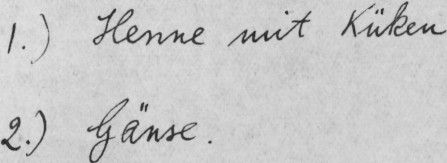 1.) Henne mit Küken
2.) Gänse.